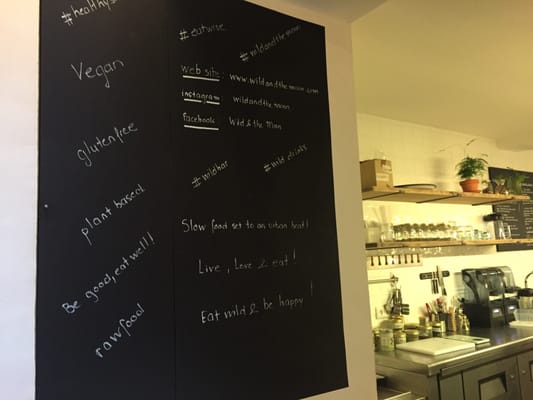 #healthy
Vegan
glutenfree
plant based
Be good, eat well!!
raw food
#eatwise
#wildandthemoon
web site: www.wildandthemoon.com
instagram: wildandthemoon
facebook: Wild & the Moon
#wildbar
#wild drinks
Slow food set to an urban beat!
Live, Love & eat!
Eat wild & be happy!